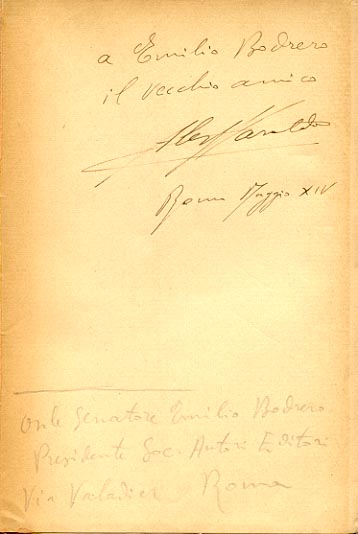 a Emilio Bodrero
il vecchio amico
Aless Varaldo
Roma Maggio XIV
Onle Senatore Emilio Bodrero
Presidente Soc. Autori Editori
Via Valadier Roma